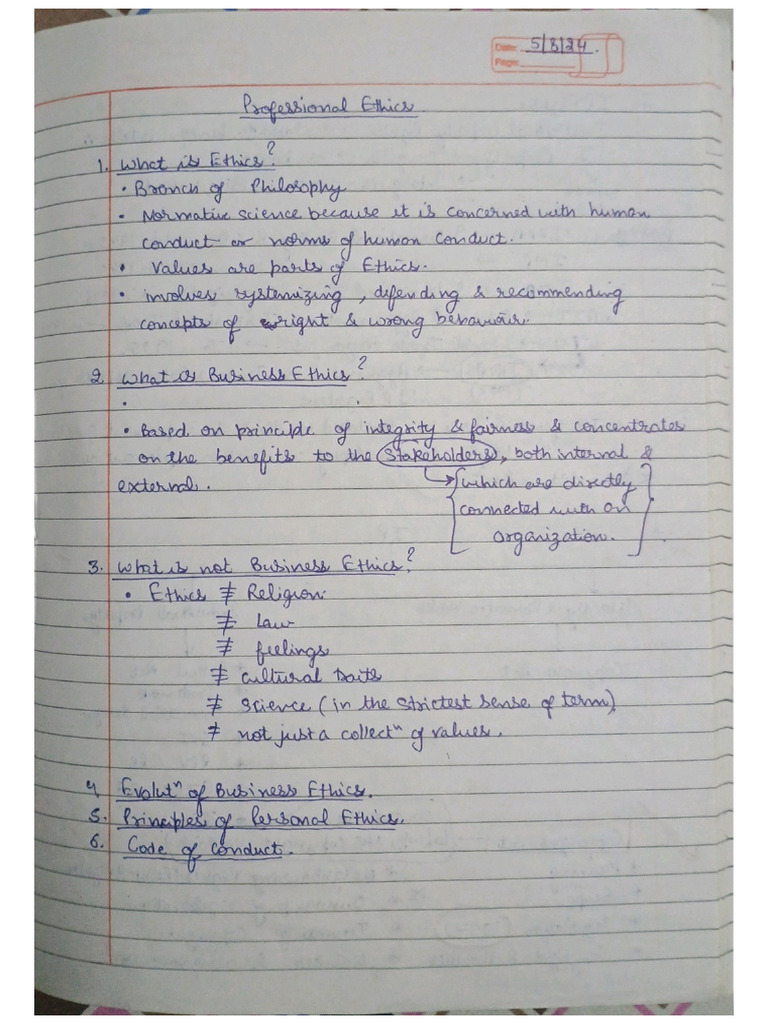 Date: 5/8/24.
Page:
Professional Ethics
1. What is Ethics?
• Branch of Philosophy
• Normative science because it is concerned with human
conduct or norms of human conduct.
• Values are parts of Ethics.
• involves systemizing, defending & recommending
concepts of right & wrong behaviour.
2. What is Business Ethics?
•
• Based on principle of integrity & fairness & concentrates
on the benefits to the Stakeholders, both internal &
external.
→ {which are directly
connected with an
organization.}
3. What is not Business Ethics?
• Ethics ≠ Religion.
≠ Law
≠ feelings
≠ cultural traits
≠ Science (in the strictest sense of term)
≠ not just a collectⁿ of values.
4. Evolutⁿ of Business Ethics.
5. Principles of Personal Ethics.
6. Code of Conduct.